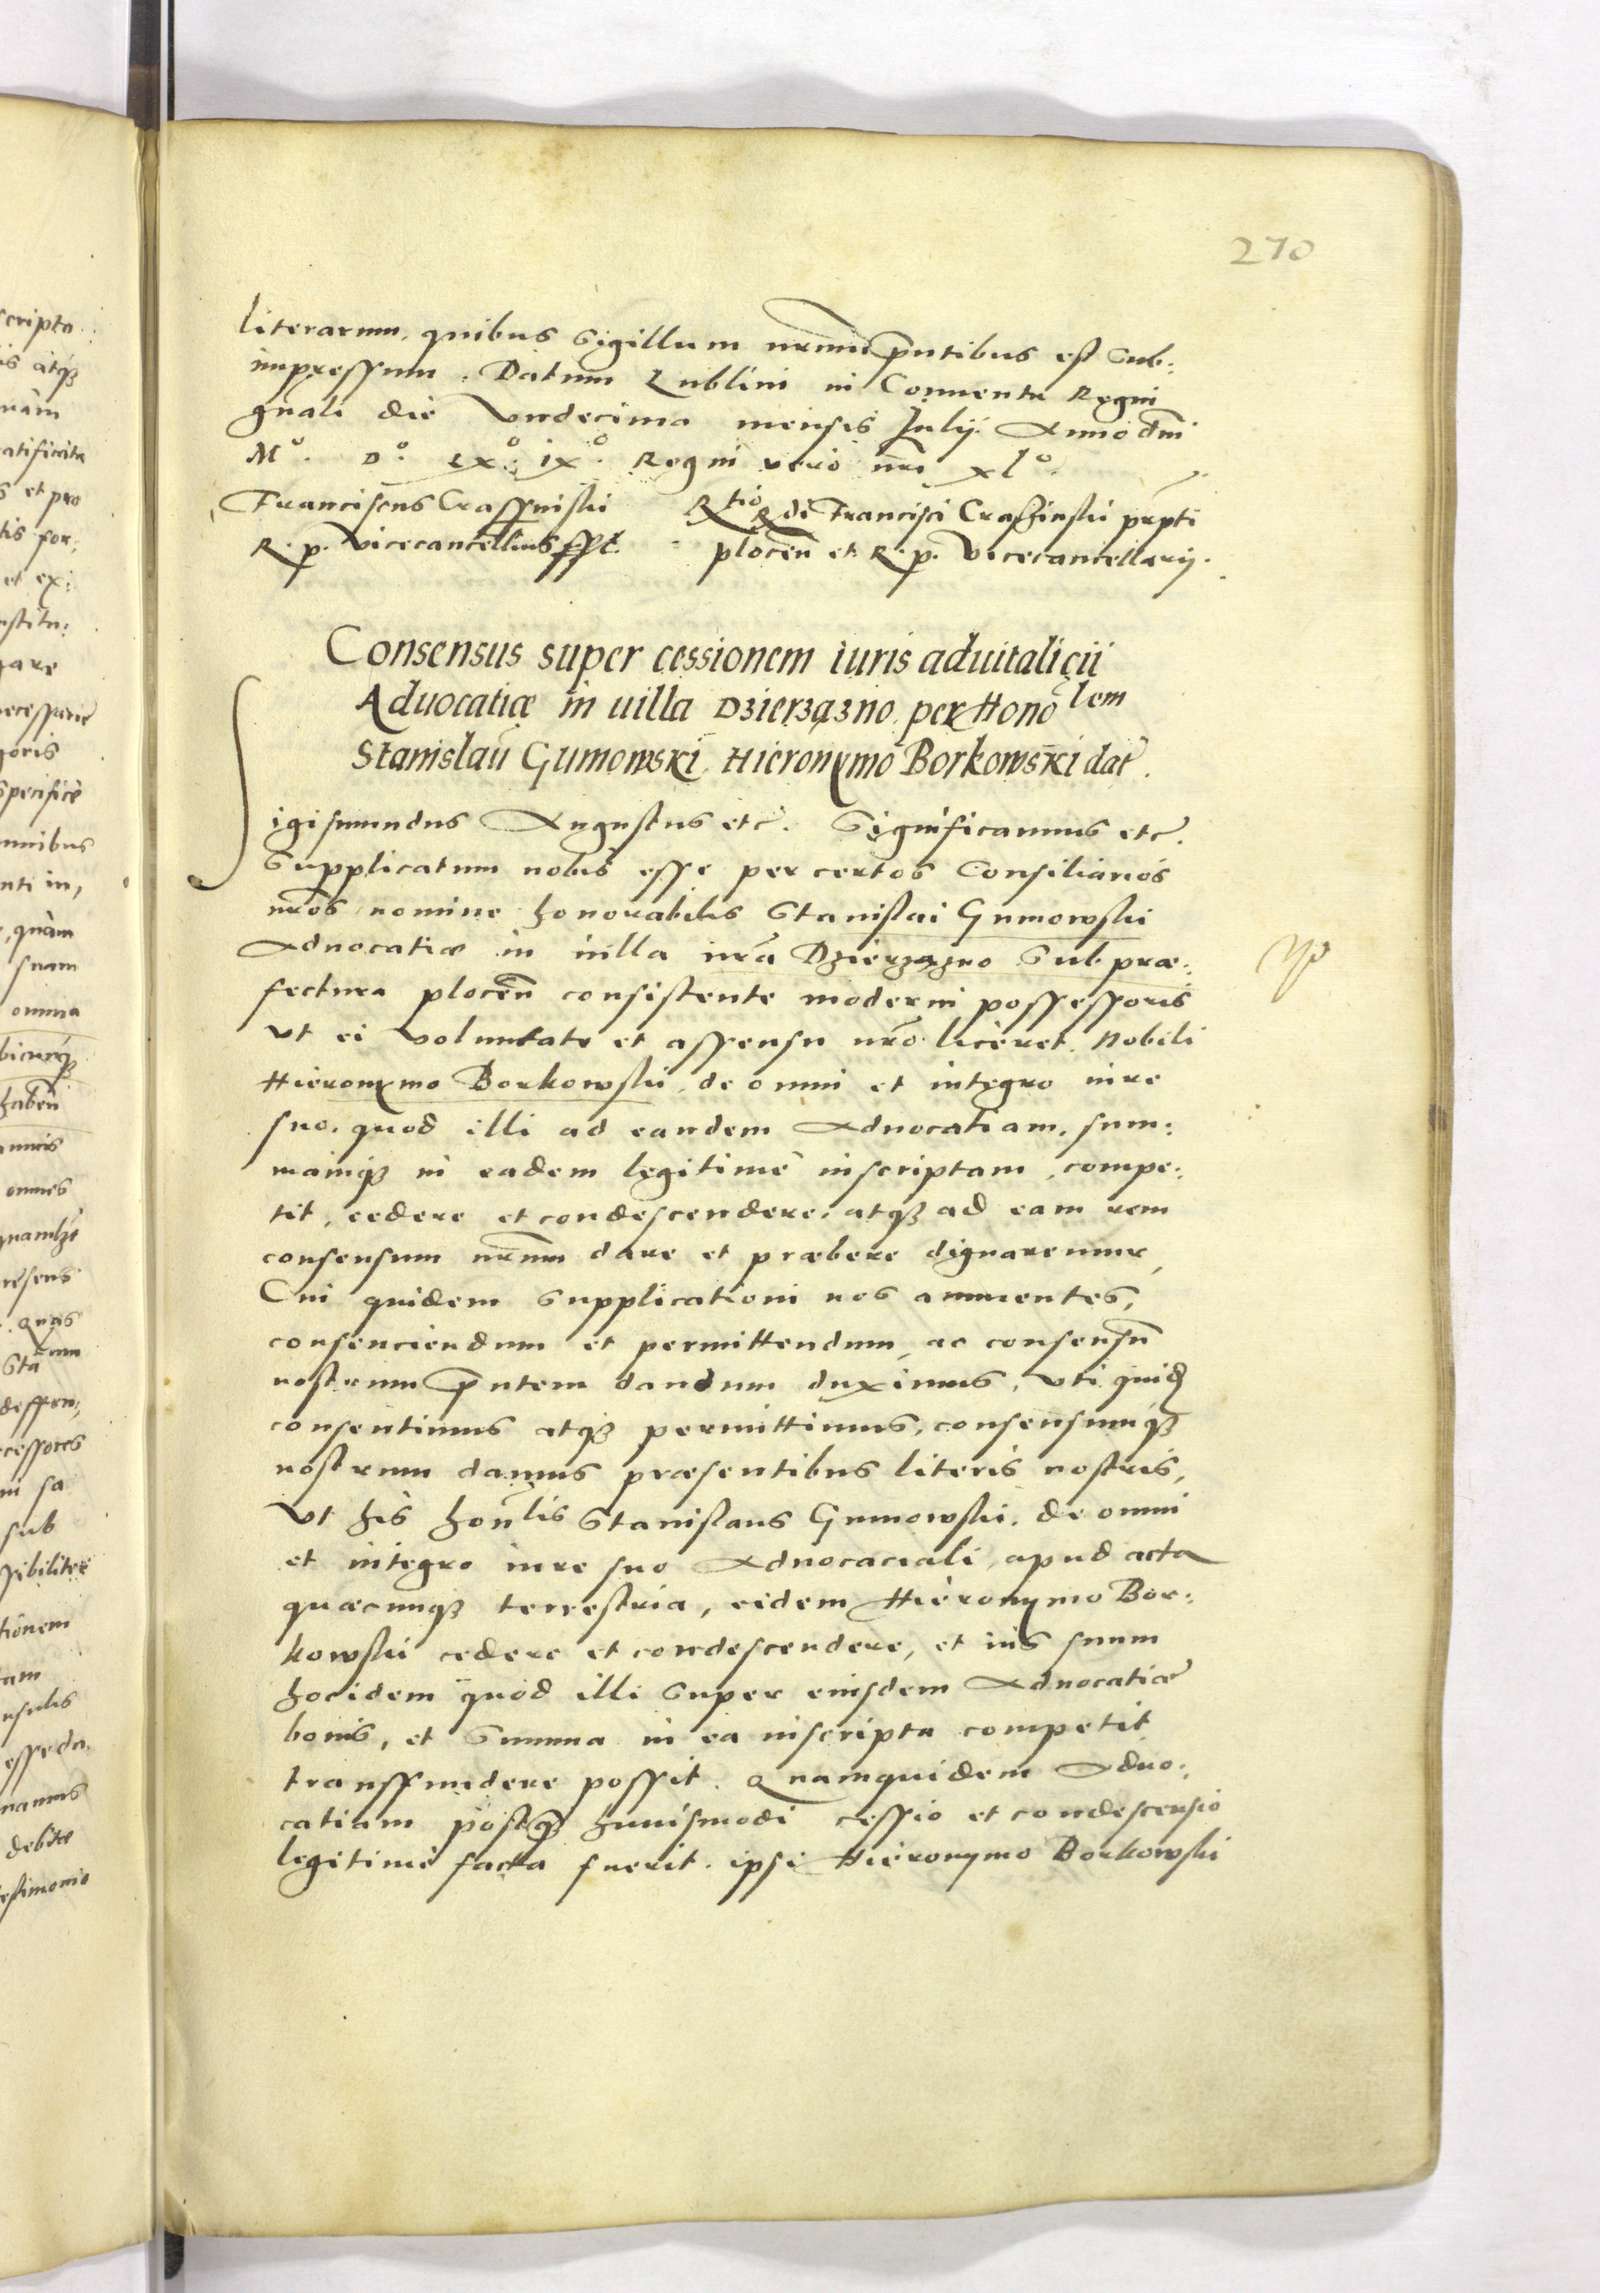 270
literarum, quibus Sigillum nrum pntibus est sub:
impressum. Datum Lublini in Conuentu Regni
gnali die Vndecima mensis Julij. Anno dni
Mº. Dº. LXº. IXº. Regni vero nri xlº.
Franciscus Crassinski Rtio Rdi Francisci Crassinski prpti
R. p. Vicecancellarius sspt. plocen et R. p. Vicecancellarij.
Consensus super cessionem iuris aduitalicii
Aduocatiæ in uilla Dzierzązno per Honolem
Stanislau Gumowski Hieronymo Borkowski dat.
Sigismundus Augustus etc. Significamus etc.
Supplicatum nobis esse per certos Consiliarios
nros nomine honorabilis Stanislai Gumowski
Aduocatiæ in uilla nra Dzierzązno Sub præ:
fectura plocen consistente moderni possessoris
Vt ei voluntate et assensu nro liceret Nobili
Hieronymo Borkowski, de omni et integro iure
suo, quod illi ad eandem Aduocatiam, sum:
mamqz in eadem legitime inscriptam, compe:
tit, cedere et condescendere, atqz ad eam rem
consensum nrum dare et præbere dignaremur,
Cui quidem supplicationi nos annuentes,
consenciendum et permittendum, ac consensu
nostrum pntem dandum duximus, Vti quid
consentimus atqz permittimus, consensumqz
nostrum damus præsentibus literis nostris,
Vt his honlis Stanislaus Gumowski, de omni
et integro iure suo Aduocaciali, apud acta
quæcunqz terrestria, eidem Hieronymo Bor:
kowski cedere et condescendere, et ius suum
hocidem quod illi super eiusdem Aduocatiæ
bonis, et Summa in ea inscripta competit
transfundere possit. Quamquidem Aduo:
catiam postqz huiusmodi cessio et condescensio
legitime facta fuerit, ipse Hieronymo Borkowski